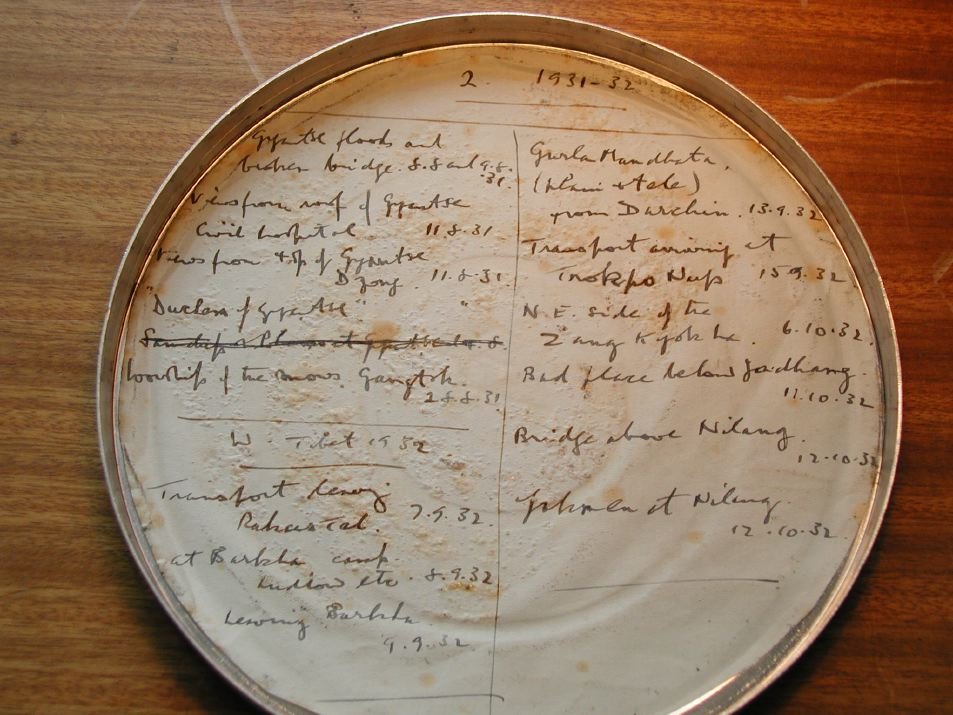 2. 1931-32
Gyantse floods and
broken bridge. 8.8 and 9.8.
31.
Views from roof of Gyantse
Civil hospital 11.8.31
Views from top of Gyantse
Dzong. 11.8.31
"Duchess of Gyantse" "
at Gyantse
Worship of the snows. Gangtok.
28.8.31
W. Tibet 1932.
Transport leaving
Rakas Tal. 7.9.32.
at Barkha camp.
Ludlow etc. 8.9.32
Leaving Barkha.
9.9.32
Gurla Mandhata.
(plain & tele)
from Darchin. 13.9.32
Transport arriving at
Trokpo Nup 15.9.32
N.E. side of the
6.10.32.
Bad place below Jadhang.
11.10.32
Bridge above Nilang.
12.10.32
at Nilang.
12.10.32